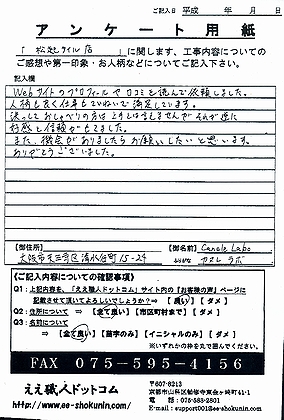 ご記入日 平成 年 月 日
アンケート用紙
「 松起タイル店 」に関します、工事内容についての
ご感想や第一印象・お人柄などについてご記入下さい。
記入欄
Webサイトのプロフィールや口コミを読んで依頼しました。
人柄も良く仕事もていねいで満足しています。
決しておしゃべりの方はとは言えませんがそれが逆に
好感と信頼がもてました。
また、機会がありましたらお願いしたいと思います。
ありがとうございました。
【御住所】
大阪市天王寺区清水谷町15-24
【御名前】 Canele Labo
ふりがな カヌレ ラボ
〈ご記入内容についての確認事項〉
Q1:上記内容を、「ええ職人ドットコム」サイト内の『お客様の声』ページに
記載させて頂いてよろしいでしょうか?⇒ 【 良い 】 【 ダメ 】
Q2:住所について ⇒ 【全て良い】 【市区町村まで】 【 ダメ 】
Q3:名前について
⇒ 【全て良い】 【苗字のみ】 【イニシャルのみ】 【 ダメ 】
※いずれかの枠を丸で囲んでください。
FAX 075-595-4156
ええ職人ドットコム
http://www.ee-shokunin.com/
〒607-8213
京都市山科区勧修寺東金ヶ崎町41-1
電話:075-583-2801
E-mail:support001@ee-shokunin.com